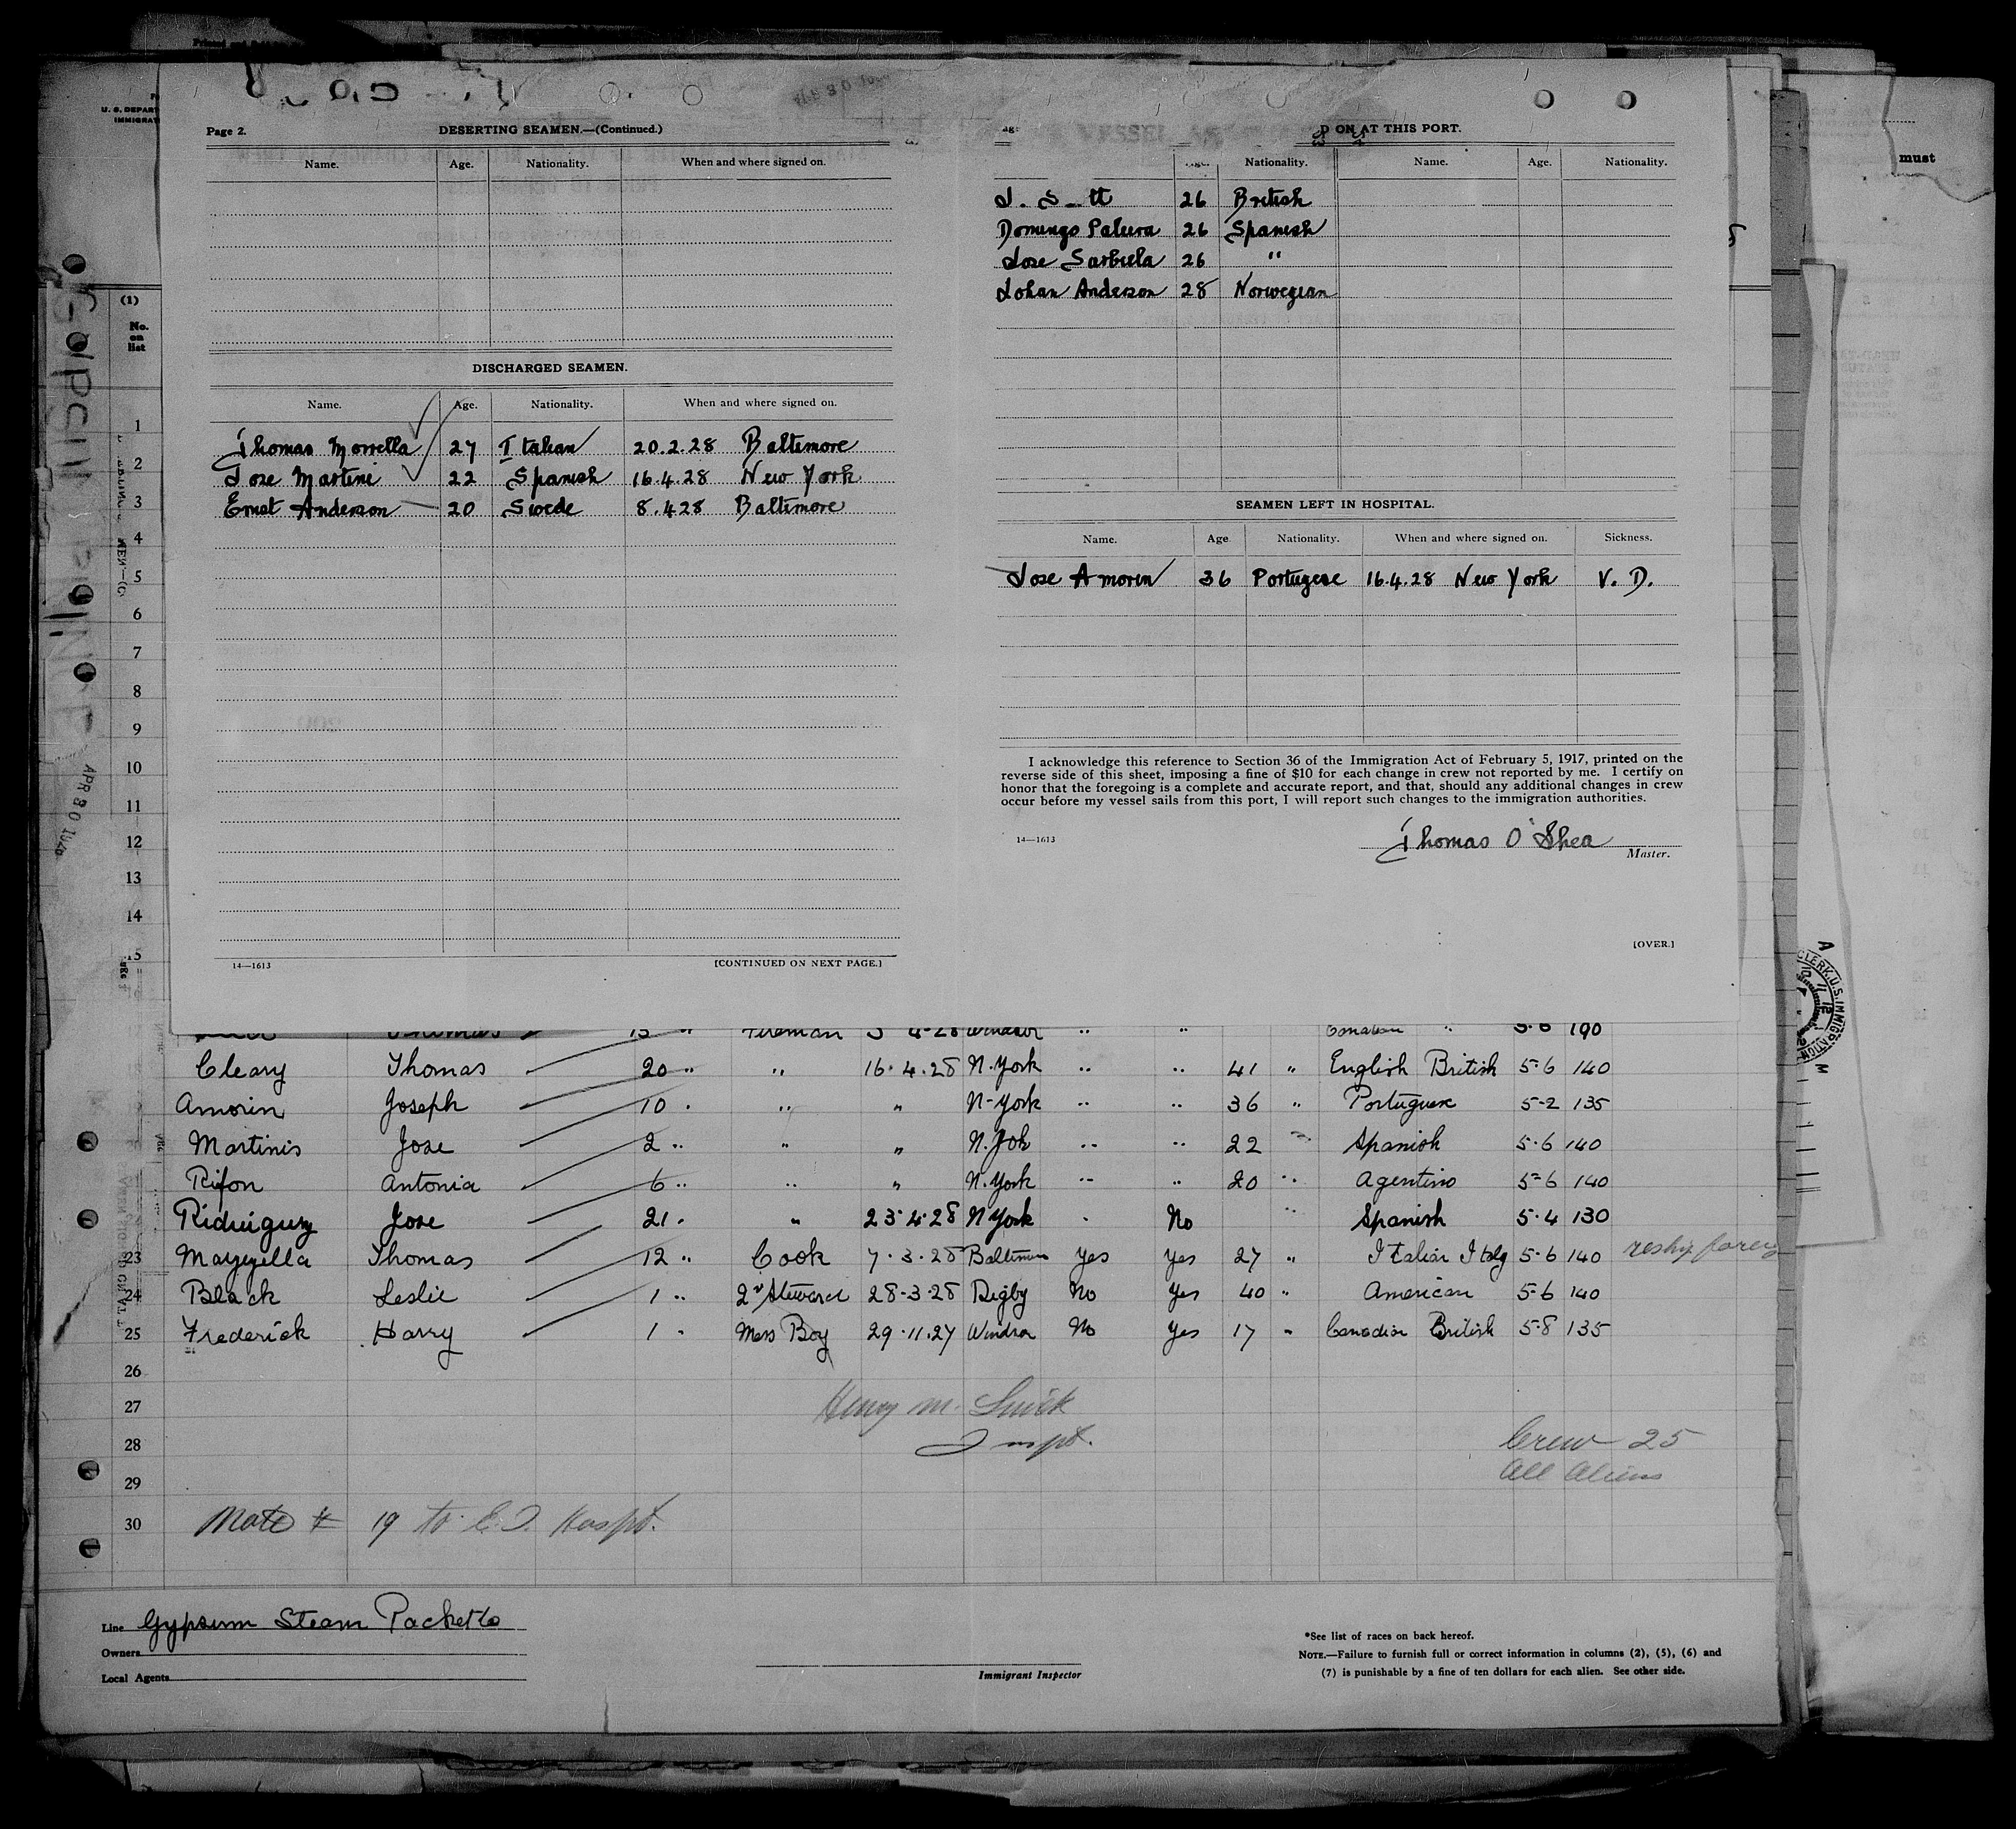 must
U. S. DEPAR
IMMIGRAT
(1)
No.
on
list
Page 2.
DESERTING SEAMEN.—(Continued.)
Name. Age. Nationality. When and where signed on.
DISCHARGED SEAMEN.
Name. Age. Nationality. When and where signed on.
Thomas Morrella 27 Italian 20.2.28 Baltimore
Jose Martini 22 Spanish 16.4.28 New York
Ernst Anderson 20 Swede 8.428 Baltimore
14—1613 [CONTINUED ON NEXT PAGE.]
D ON AT THIS PORT.
Nationality. Name. Age. Nationality.
26 British
Domingo Paleira 26 Spanish
Jose Sarbiela 26 "
Johan Anderson 28 Norwegian
SEAMEN LEFT IN HOSPITAL.
Name. Age Nationality. When and where signed on. Sickness.
Jose Amorin 36 Portugese 16.4.28 New York V. D.
I acknowledge this reference to Section 36 of the Immigration Act of February 5, 1917, printed on the
reverse side of this sheet, imposing a fine of $10 for each change in crew not reported by me. I certify on
honor that the foregoing is a complete and accurate report, and that, should any additional changes in crew
occur before my vessel sails from this port, I will report such changes to the immigration authorities.
14—1613
Thomas O'Shea
Master.
[OVER.]
1
2
3
4
5
6
7
8
9
10
11
12
13
14
15
Thomas 15 " Fireman 5 4-28 Windsor " " Canadian " 5-6 190
Cleary Thomas 20 " " 16.4.28 N.York " " 41 " English British 5-6 140
Amorin Joseph 10 " " " N-York " " 36 " Portuguese 5-2 135
Martinis Jose 2 " " " N.Yok " " 22 " Spanish 5.6 140
Rifon Antonia 6 " " " N.York " " 20 " Agentino 5-6 140
Riduiguez Jose 21 " " 23.4.28 N York " No " Spanish 5.4 130
23 Mayyella Thomas 12 " Cook 7.3.28 Baltimore Yes Yes 27 " Italian Italy 5-6 140
24 Black Leslie 1 " 2nd Steward 28-3-28 Digby No Yes 40 " American 5-6 140
25 Frederick Harry 1 " Mess Boy 29.11.27 Windsor No Yes 17 " Canadian British 5-8 135
26
27 Henry M.
28 Inspt. Crew 25
29 All Aliens
30 Note # 19 to E.I. Hospt.
Line Gypsum Steam Packet Co
Owners
Local Agents
Immigrant Inspector
*See list of races on back hereof.
NOTE.—Failure to furnish full or correct information in columns (2), (5), (6) and
(7) is punishable by a fine of ten dollars for each alien. See other side.